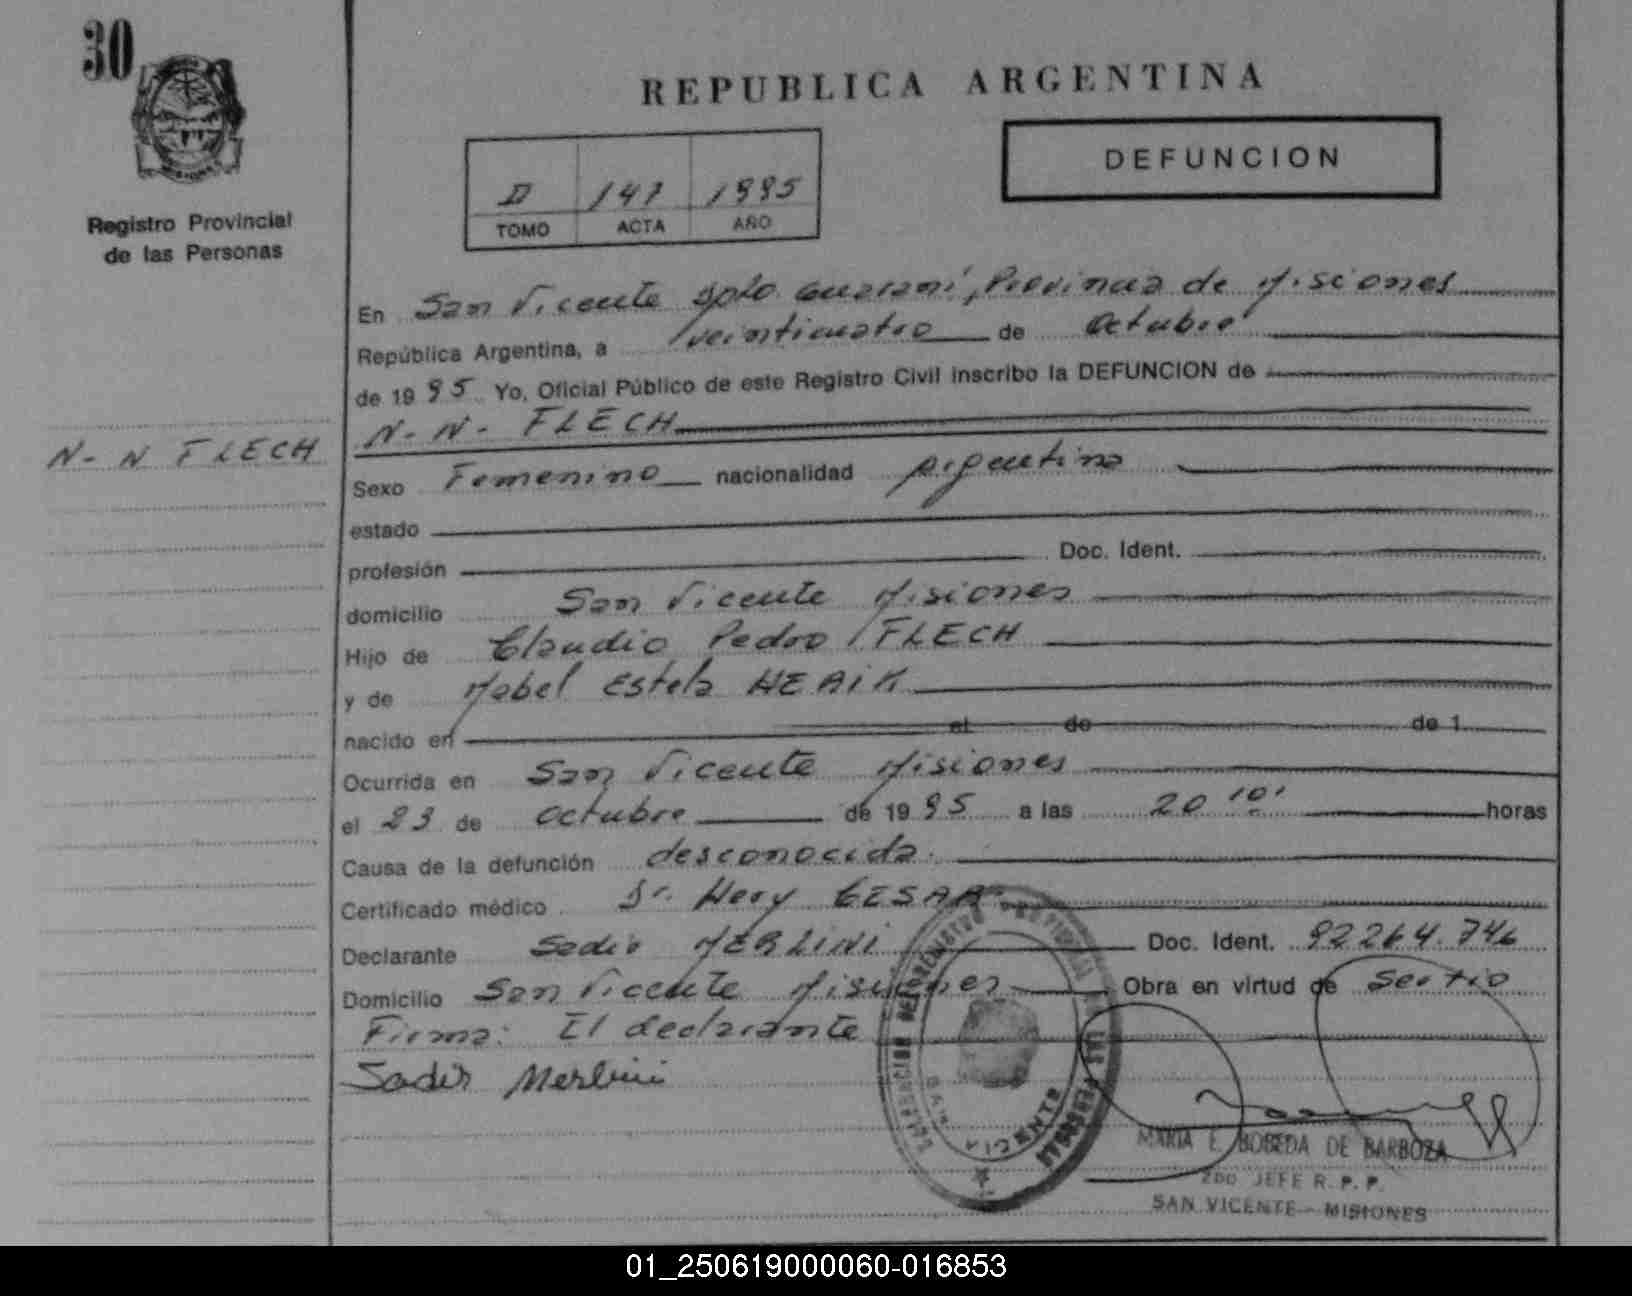 30
REPUBLICA ARGENTINA
DEFUNCION
D 147 1995
TOMO ACTA AÑO
Registro Provincial
de las Personas
En San Vicente Dpto. Guaraní, Provincia de Misiones
República Argentina, a veinticuatro de Octubre
de 1995 Yo, Oficial Público de este Registro Civil inscribo la DEFUNCION de
N- N FLECH
N- N- FLECH
Sexo Femenino nacionalidad Argentina
estado
profesión Doc. Ident.
domicilio San Vicente Misiones
Hijo de Claudio Pedro FLECH
y de Mabel Estela HEAIK
nacido en el de de 1
Ocurrida en San Vicente Misiones
el 23 de Octubre de 1995 a las 20 10' horas
Causa de la defunción desconocida.
Certificado médico Dr. Hery CESAR
Declarante Sadis MERLINI Doc. Ident. 92264.746
Domicilio San Vicente Misiones Obra en virtud de
Firma: El declarante
Sadis Merlini
SAN VICENTE
MARIA E. BOBEDA DE BARBOZA
2DO JEFE R. P. P.
SAN VICENTE - MISIONES
01_250619000060-016853